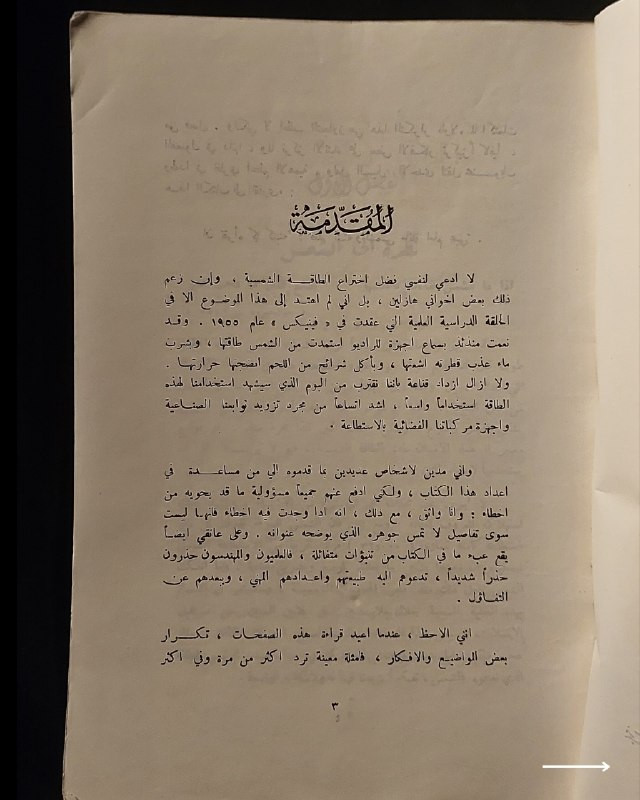 المُقَدِّمَة
لا ادعي لنفسي فضل اختراع الطاقــة الشمسية . وإن زعم
ذلك بعض اخواني هازلين ، بل اني لم اهتــد إلى هذا الموضــوع الا في
الحلقة الدراسية العلمية التي عقدت في « فينيكس » عام ١٩٥٥ . وقــد
نعمت منذئذ بسماع اجهزة للراديو استمدت من الشمس طاقتها ، وبشرب
ماء عذب قطرته اشعتها ، وبأكل شرائح من اللحم انضجتها حرارتهــا .
ولا ازال ازداد قناعة باننا نقترب من اليوم الذي سيشهد استخدامنا لهذه
الطاقة استخداماً واسعاً ، اشد اتساعاً من مجرد تزويد توابعنا الصنــاعية
واجهزة مركباتنا الفضائية بالاستطاعة .
واني مدين لاشخاص عديدين بما قدموه الي من مساعــدة في
اعداد هذا الكتاب ، ولكني ادفع عنهم جميعاً مسؤولية ما قد يحويه من
اخطاء : وانا واثق ، مع ذلك ، انه اذا وجدت فيه اخطاء فانهــا ليست
سوى تفاصيل لا تمس جوهره الذي يوضحه عنوانه . وعلى عاتقي ايضــاً
يقع عبء ما في الكتاب من تنبؤات متفائلة ، فالعلميون والمهندسون حذرون
حذراً شديداً ، تدعوهم اليه طبيعتهم واعــدادهم المهني ، وبعدهم عــن
التفــاؤل .
انني الاحظ ، عندما اعيد قراءة هذه الصفحــات ، تكــرار
بعض المواضيــع والافكــار ، فامثلة معينة ترد اكثر من مرة وفي اكثر
٣